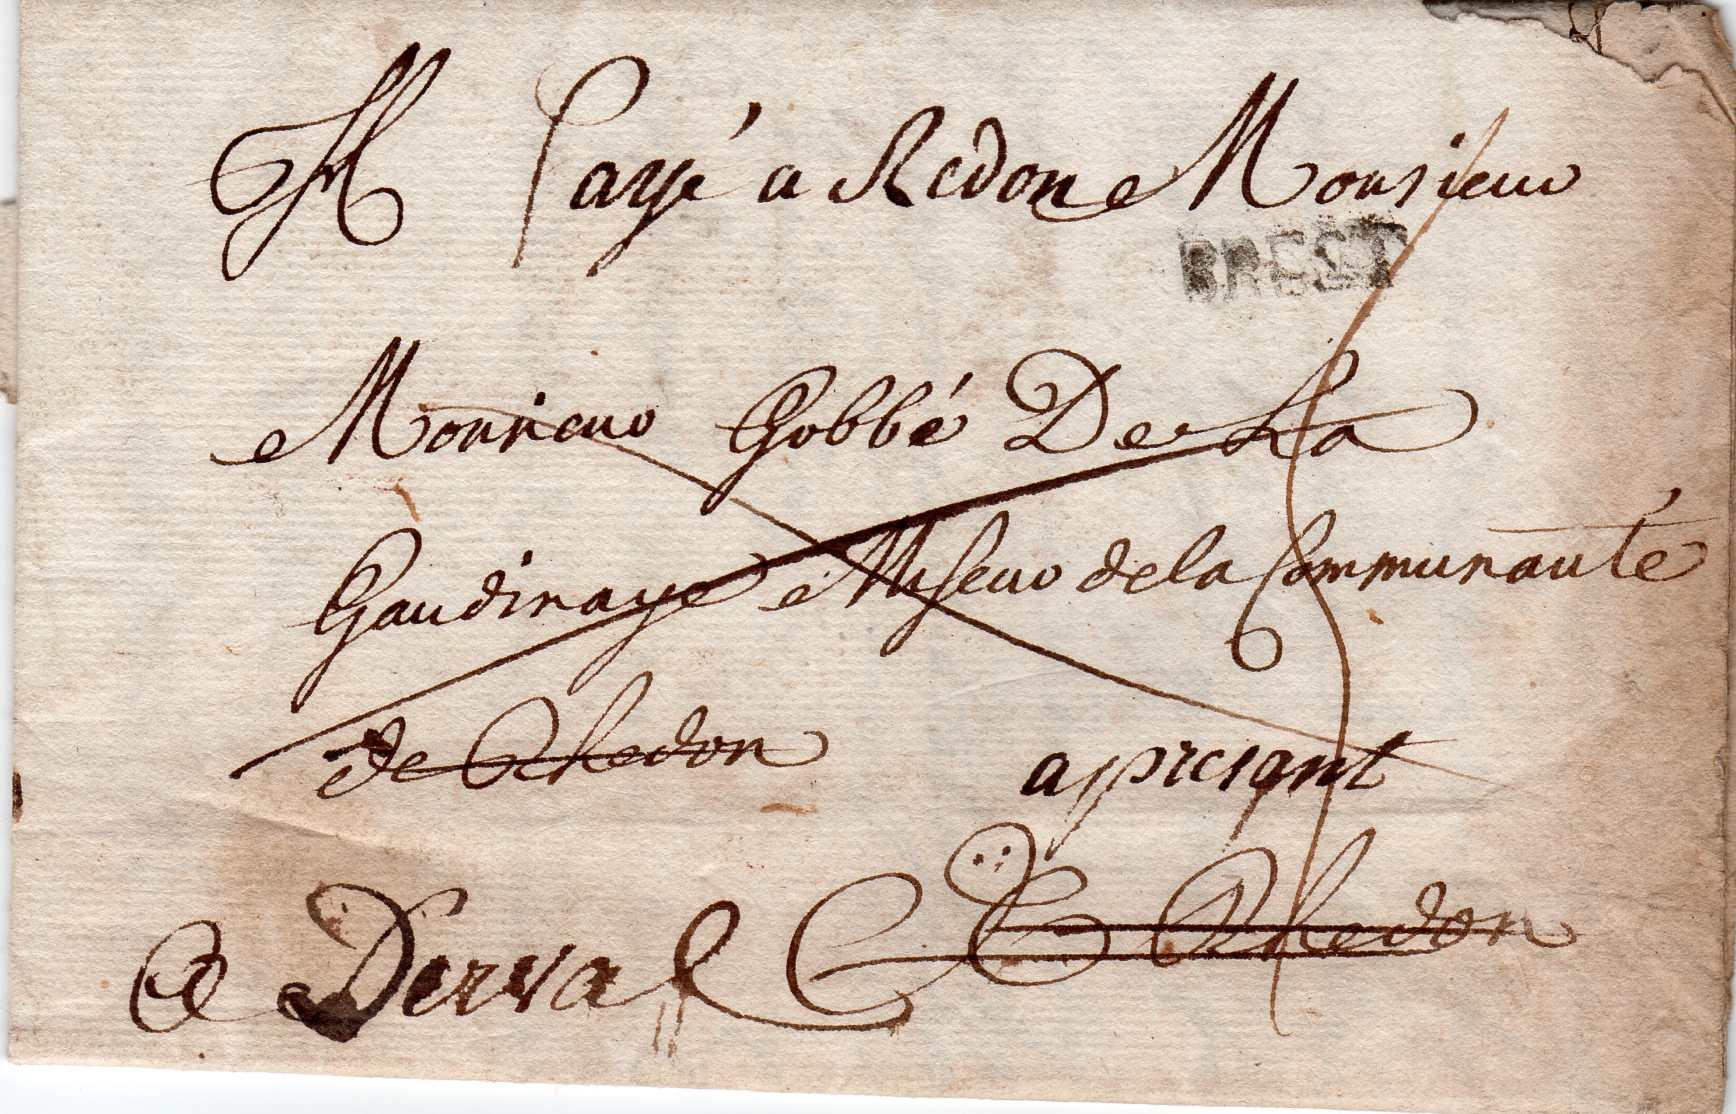 Payé a Redon Monsieur
BREST
Monsieur Gobbé De La
Gaudinaye Miseur de la Communauté
de Rhedon
apresant
a Derval Rhedon